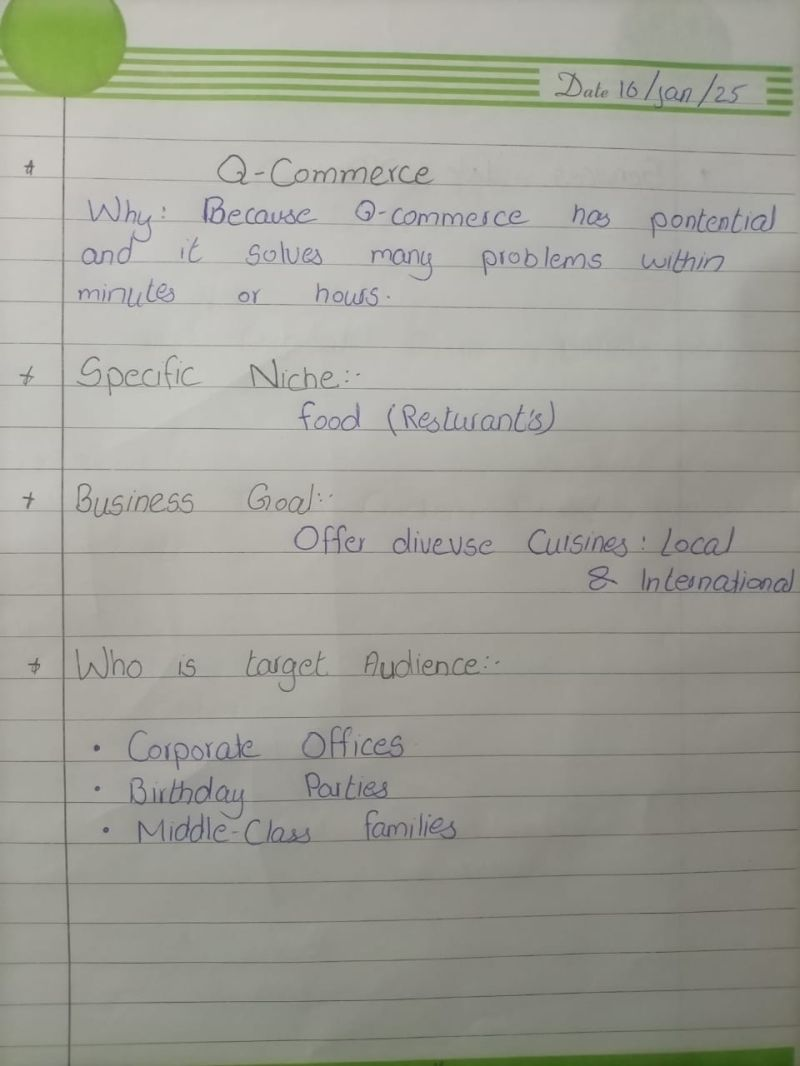 Date 16/jan/25
* Q-Commerce
Why: Because Q-commerce has pontential
and it solves many problems within
minutes or hours.
* Specific Niche:-
food (Resturant's)
* Business Goal:-
Offer diverse Cuisines: Local
& International
* Who is target Audience:-
• Corporate Offices
• Birthday Parties
• Middle-Class families